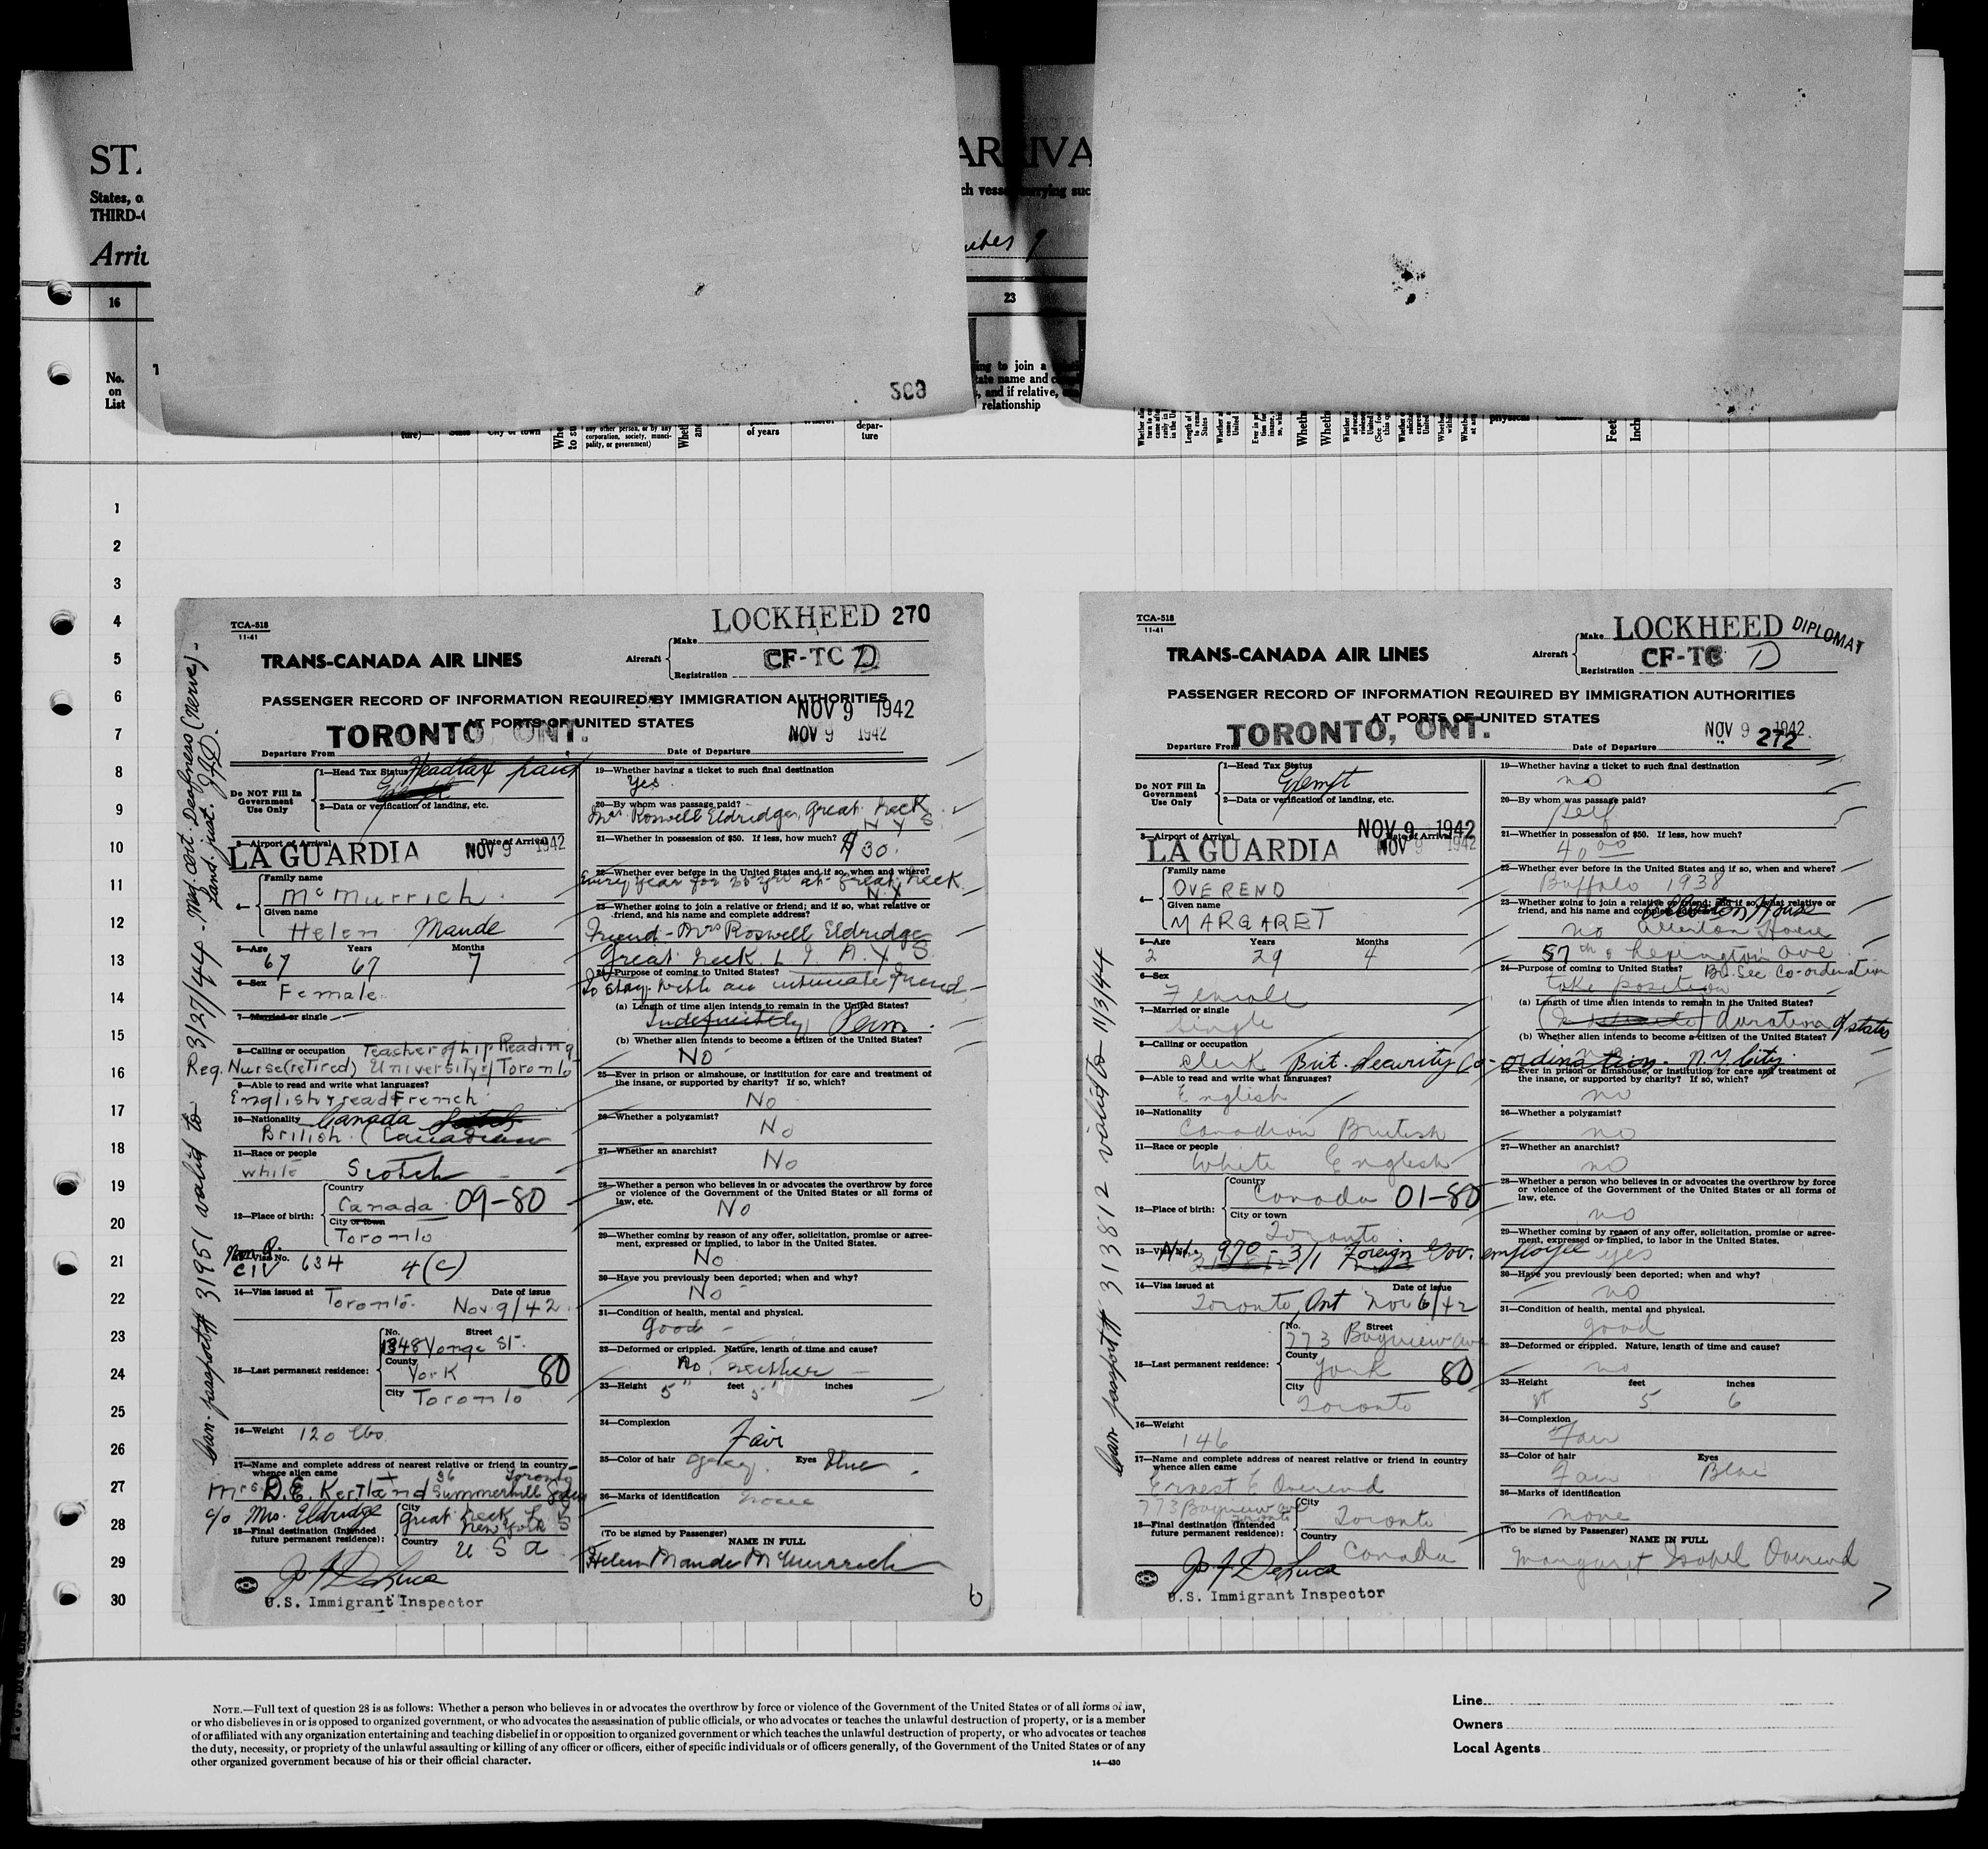 ST
ARRIVA
States, o
THIRD-
ch vess
rrying suc
Arri
utes 9
16
23
No.
on
List
ing to join a
ate name and
, and if relative,
relationship
any other person, or by any
corporation, society, munici-
pality, or government)
of years
depar-
ture
physical
Feet
Inch
1
2
3
4
5
6
7
8
9
10
11
12
13
14
15
16
17
18
19
20
21
22
23
24
25
26
27
28
29
30
Can. passport # 31951 valid to 3/27/44 - Med. cert. Deafness (nerve) -
TCA-518
11-41
LOCKHEED 270
TRANS-CANADA AIR LINES
Aircraft
Make
CF-TC D
Registration
PASSENGER RECORD OF INFORMATION REQUIRED BY IMMIGRATION AUTHORITIES
AT PORTS OF UNITED STATES
NOV 9 1942
Departure From TORONTO, ONT.
Date of Departure NOV 9 1942
Do NOT Fill In
Government
Use Only
1—Head Tax Status Headtax paid
Exempt
2—Data or verification of landing, etc.
3—Airport of Arrival LA GUARDIA
Date of Arrival NOV 9 1942
4—
Family name
McMurrich
Given name
Helen Maude
5—Age Years Months
67 67 7
6—Sex
Female
7—Married or single
8—Calling or occupation Teacher of Lip Reading
Reg. Nurse (retired) University of Toronto
9—Able to read and write what languages?
English & read French
10—Nationality Canada
British (Canadian
11—Race or people
white Scotch
12—Place of birth:
Country
Canada 09-80
City or town
Toronto
Non Q.
CIV
Visa No. 634 4(c)
14—Visa issued at Toronto Date of issue Nov. 9/42
15—Last permanent residence:
No. Street
1348 Yonge St.
County
York 80
City Toronto
16—Weight 120 lbs.
17—Name and complete address of nearest relative or friend in country
whence alien came
Mrs. D.E. Kertland 36 Summerhill Gdns Toronto
c/o Mrs. Eldridge
18—Final destination (Intended
future permanent residence):
City
Great Neck L I
New York S
Country U S A
Jos J DeLuca
U.S. Immigrant Inspector
19—Whether having a ticket to such final destination
Yes
20—By whom was passage paid?
Mrs. Roswell Eldridge, Great Neck
N Y S
21—Whether in possession of $50. If less, how much? $30.
22—Whether ever before in the United States and if so, when and where?
Every year for 25 yrs at Great Neck
N.Y
23—Whether going to join a relative or friend; and if so, what relative or
friend, and his name and complete address?
Friend - Mrs Roswell Eldridge
Great Neck L I N. Y S
24—Purpose of coming to United States?
To stay with an intimate friend
(a) Length of time alien intends to remain in the United States?
Indefinitely Perm.
(b) Whether alien intends to become a citizen of the United States?
No
25—Ever in prison or almshouse, or institution for care and treatment of
the insane, or supported by charity? If so, which?
No
26—Whether a polygamist?
No
27—Whether an anarchist?
No
28—Whether a person who believes in or advocates the overthrow by force
or violence of the Government of the United States or all forms of
law, etc.
No
29—Whether coming by reason of any offer, solicitation, promise or agree-
ment, expressed or implied, to labor in the United States.
No
30—Have you previously been deported; when and why?
No
31—Condition of health, mental and physical.
good
32—Deformed or crippled. Nature, length of time and cause?
No. neither
33—Height 5 feet 5 inches
34—Complexion
Fair
35—Color of hair grey Eyes Blue
36—Marks of identification none
(To be signed by Passenger) NAME IN FULL
Helen Maude McMurrich
6
Can. passport # 313812 valid to 11/3/44
TCA-518
11-41
TRANS-CANADA AIR LINES
Aircraft
Make LOCKHEED
DIPLOMAT
Registration CF-TC D
PASSENGER RECORD OF INFORMATION REQUIRED BY IMMIGRATION AUTHORITIES
AT PORTS OF UNITED STATES
Departure From TORONTO, ONT.
Date of Departure NOV 9 1942
272
Do NOT Fill In
Government
Use Only
1—Head Tax Status
Exempt
2—Data or verification of landing, etc.
3—Airport of Arrival LA GUARDIA
NOV 9 1942
Date of Arrival NOV 9 1942
4—
Family name
OVEREND
Given name
MARGARET
5—Age Years Months
2 29 4
6—Sex
Female
7—Married or single
Single
8—Calling or occupation
Clerk Brit. Security Co-ordination. N.Y. City.
9—Able to read and write what languages?
English
10—Nationality
Canadian British
11—Race or people
White English
12—Place of birth:
Country
Canada 01-80
City or town
Toronto
13—Visa No. 970 - 3/1 Foreign Gov. employee
14—Visa issued at Date of issue
Toronto, Ont Nov 6/42
15—Last permanent residence:
No. Street
773 Bayview Ave
County
York 80
City
Toronto
16—Weight
146
17—Name and complete address of nearest relative or friend in country
whence alien came
Ernest E Overend
773 Bayview Ave
Toronto
18—Final destination (Intended
future permanent residence):
City
Toronto
Country
Canada
Jos J DeLuca
U.S. Immigrant Inspector
19—Whether having a ticket to such final destination
no
20—By whom was passage paid?
Self
21—Whether in possession of $50. If less, how much?
40.00
22—Whether ever before in the United States and if so, when and where?
Buffalo 1938
23—Whether going to join a relative or friend; and if so, what relative or
friend, and his name and complete address? Allerton House
no Allerton House
57th & Lexington Ave
24—Purpose of coming to United States? Br. Sec. Co-ordination
take position
(a) Length of time alien intends to remain in the United States?
duration of status
(b) Whether alien intends to become a citizen of the United States?
no
25—Ever in prison or almshouse, or institution for care and treatment of
the insane, or supported by charity? If so, which?
no
26—Whether a polygamist?
no
27—Whether an anarchist?
no
28—Whether a person who believes in or advocates the overthrow by force
or violence of the Government of the United States or all forms of
law, etc.
no
29—Whether coming by reason of any offer, solicitation, promise or agree-
ment, expressed or implied, to labor in the United States.
yes
30—Have you previously been deported; when and why?
no
31—Condition of health, mental and physical.
good
32—Deformed or crippled. Nature, length of time and cause?
no
33—Height feet inches
5 6
34—Complexion
Fair
35—Color of hair Eyes
Fair Blue
36—Marks of identification
none
(To be signed by Passenger) NAME IN FULL
Margaret Isobel Overend
7
NOTE.—Full text of question 28 is as follows: Whether a person who believes in or advocates the overthrow by force or violence of the Government of the United States or of all forms of law,
or who disbelieves in or is opposed to organized government, or who advocates the assassination of public officials, or who advocates or teaches the unlawful destruction of property, or is a member
of or affiliated with any organization entertaining and teaching disbelief in or opposition to organized government or which teaches the unlawful destruction of property, or who advocates or teaches
the duty, necessity, or propriety of the unlawful assaulting or killing of any officer or officers, either of specific individuals or of officers generally, of the Government of the United States or of any
other organized government because of his or their official character.
14—430
Line
Owners
Local Agents